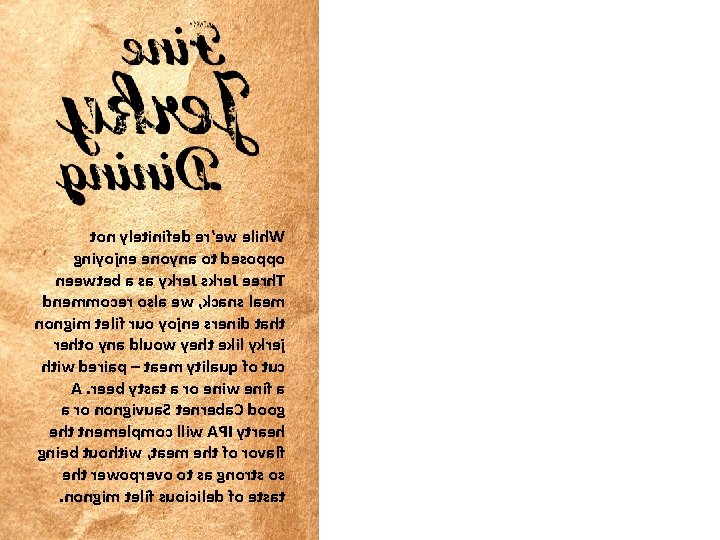 Fine
Jerky
Dining
While we're definitely not
opposed to anyone enjoying
Three Jerks Jerky as a between
meal snack, we also recommend
that diners enjoy our filet mignon
jerky like they would any other
cut of quality meat – paired with
a fine wine or a tasty beer. A
good Cabernet Sauvignon or a
hearty IPA will complement the
flavor of the meat, without being
so strong as to overpower the
taste of delicious filet mignon.